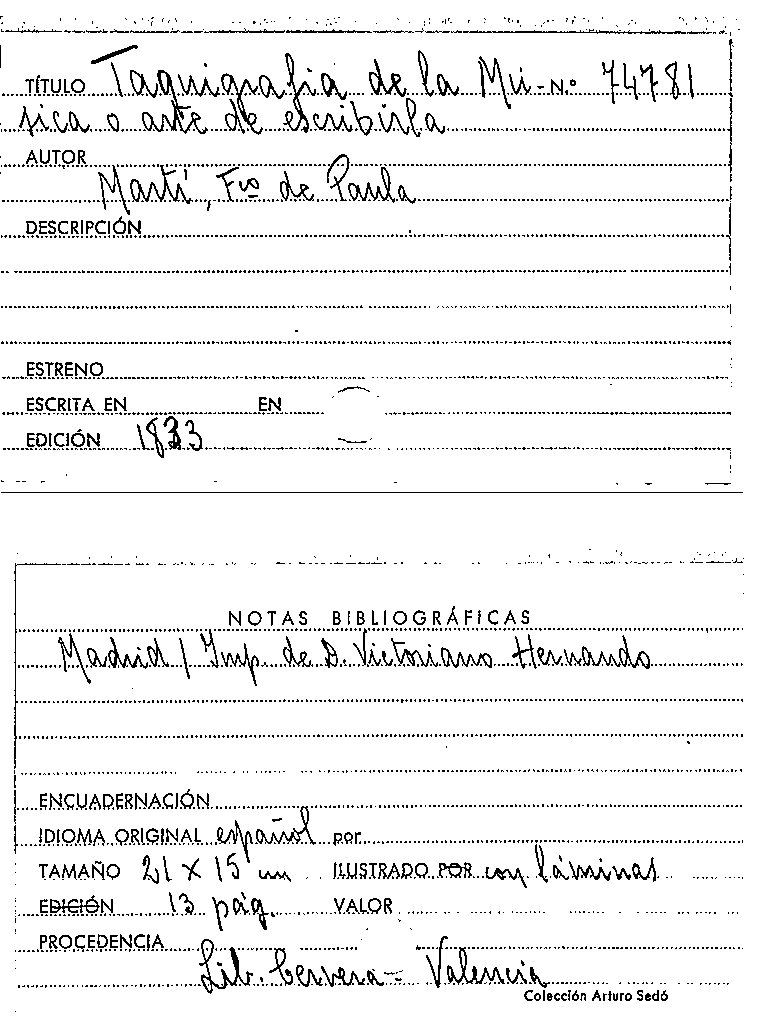 TÍTULO Taquigrafia de la Mú- N.º 74781
sica o arte de escribirla
AUTOR
Martí, Fco de Paula
DESCRIPCIÓN
ESTRENO
ESCRITA EN EN
EDICIÓN 1833
NOTAS BIBLIOGRÁFICAS
Madrid / Imp. de D. Victoriano Hernando
ENCUADERNACIÓN
IDIOMA ORIGINAL español por
TAMAÑO 21 X 15 cm ILUSTRADO POR con láminas
EDICIÓN 13 pág. VALOR
PROCEDENCIA
Lib. Cervera - Valencia
Colección Arturo Sedó